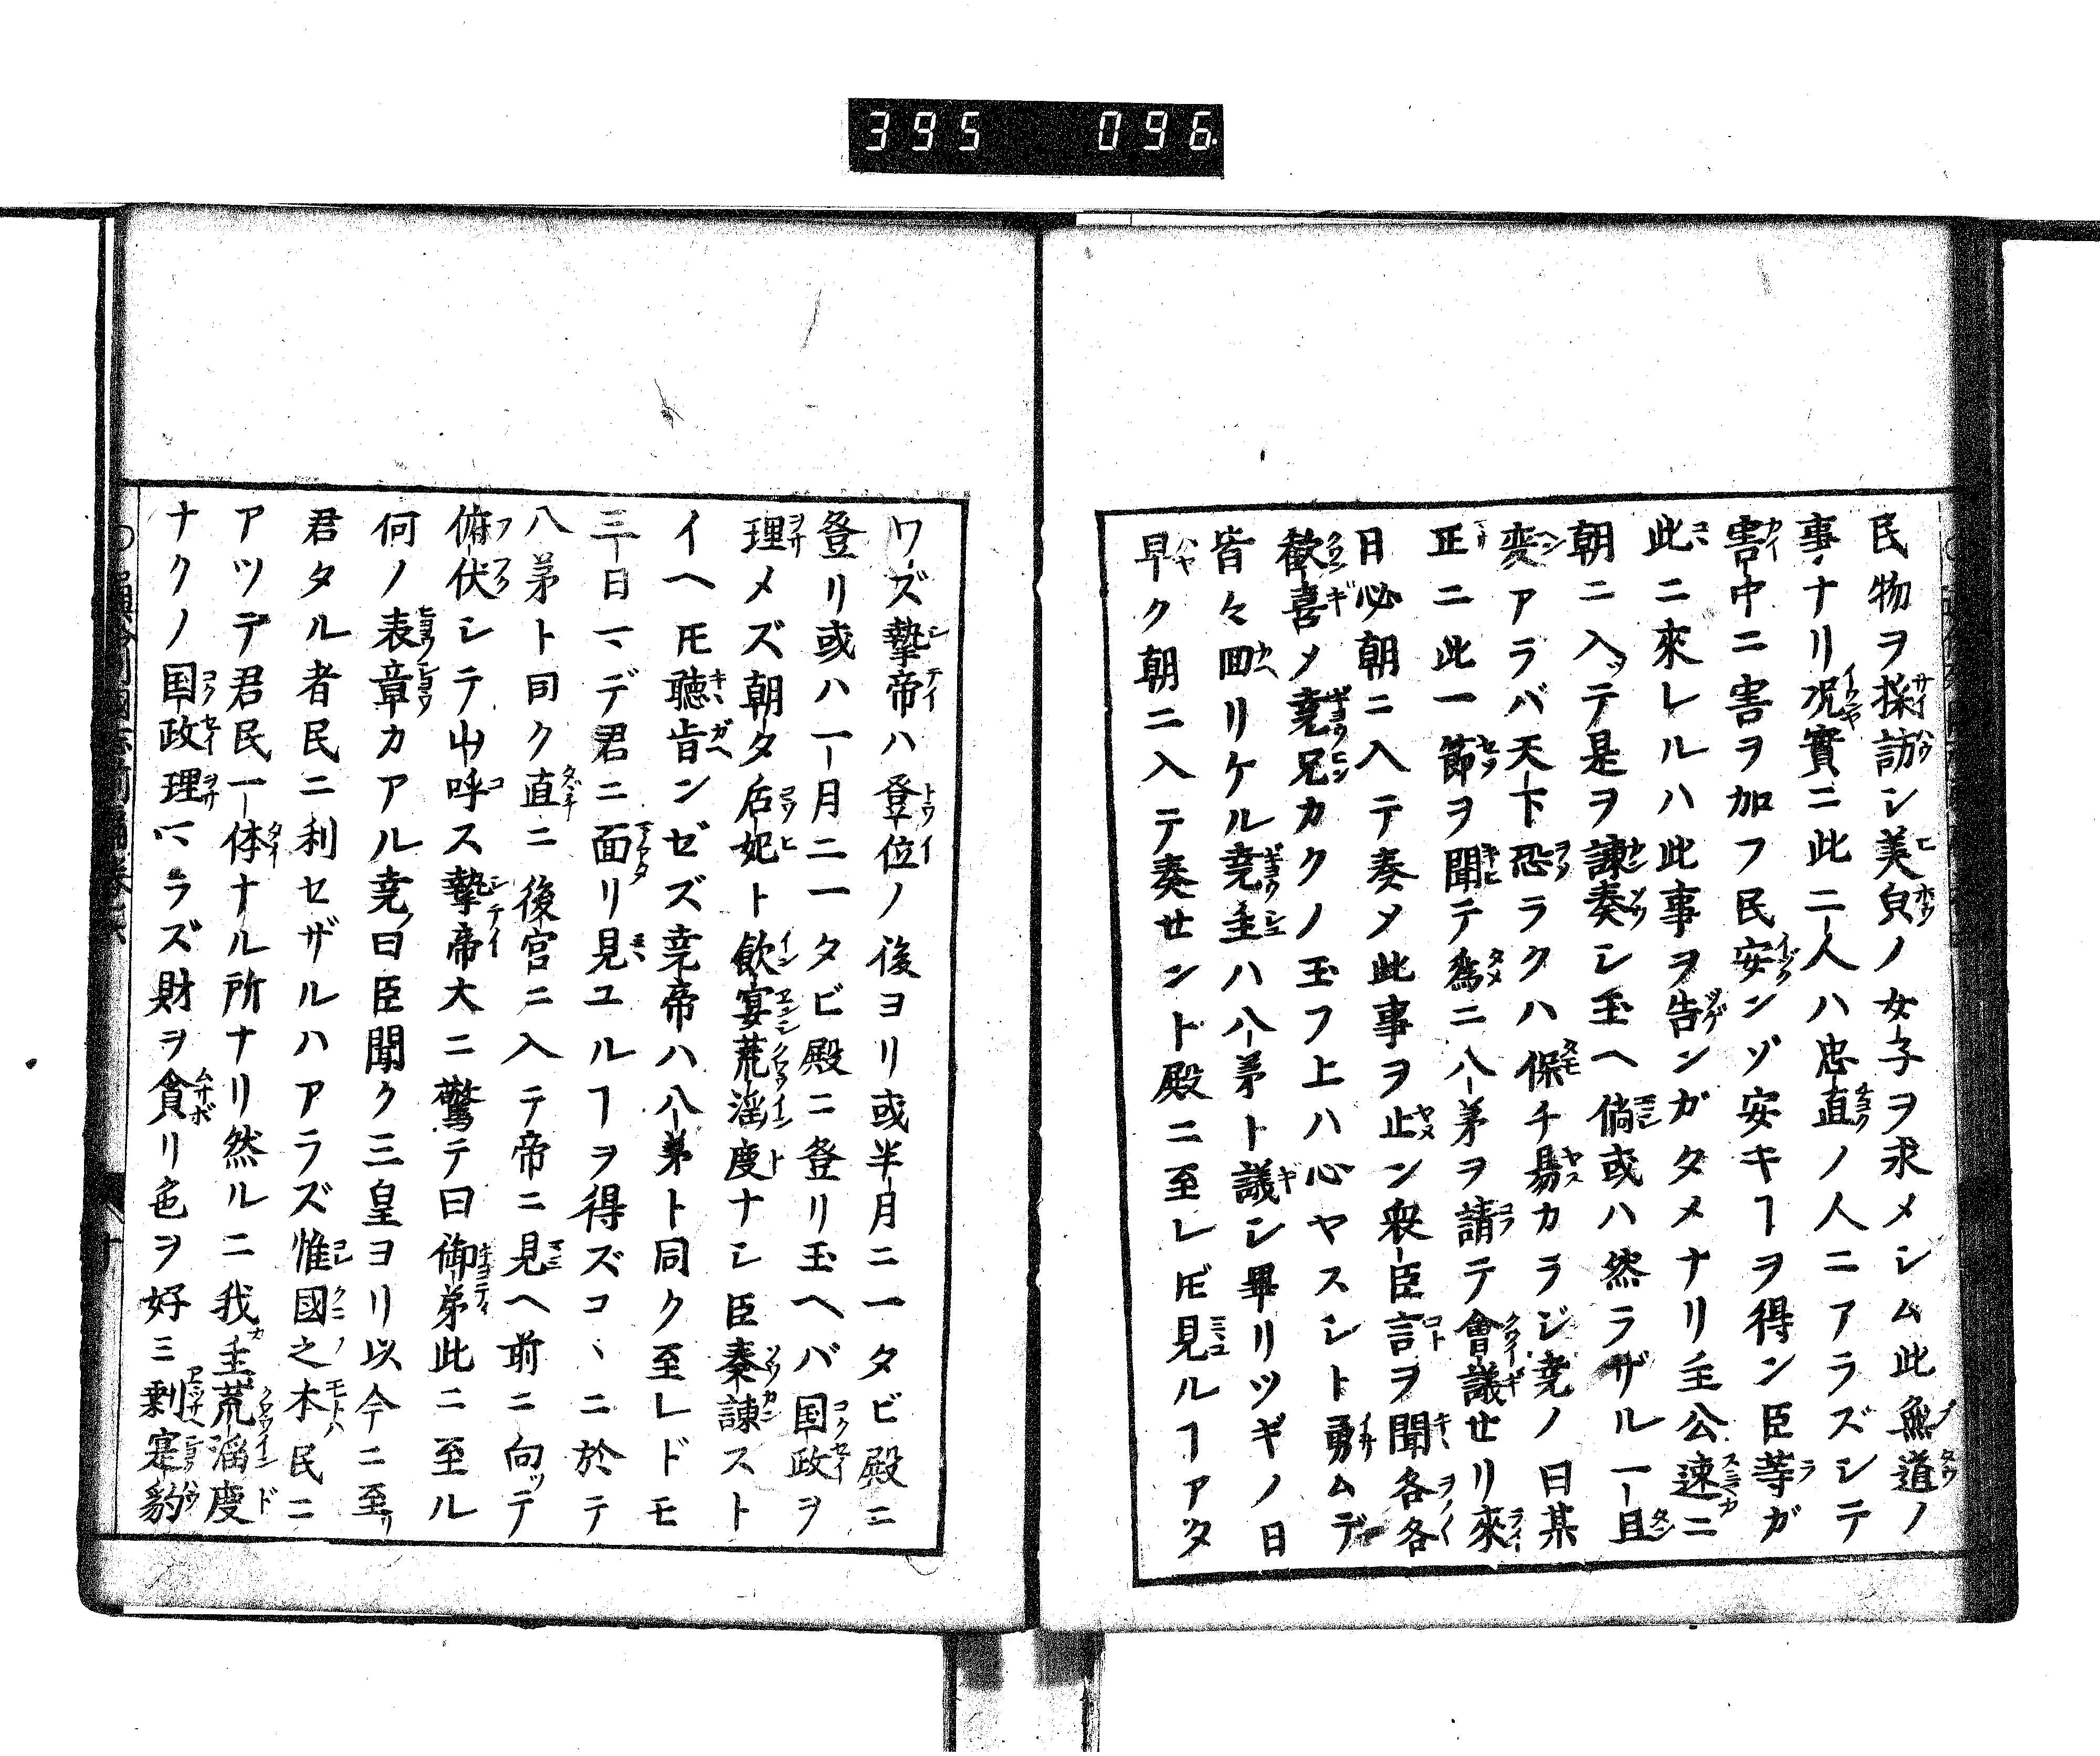 395 096
民物ヲ採訪シ美皃ノ女子ヲ求メシム此無道ノ
事ナリ况實ニ此二人ハ忠直ノ人ニアラズシテ
害中ニ害ヲ加フ民安ンゾ安キヿヲ得ン臣等ガ
此ニ來レルハ此事ヲ告ンガタメナリ主公速ニ
朝ニ入テ是ヲ諫奏シ玉ヘ倘或ハ然ラザル一旦
変アラバ天下恐ラクハ保チ易カラジ尭ノ曰某
正ニ此一節ヲ聞テ為ニ八弟ヲ請テ會議せリ來
日必朝ニ入テ奏メ此事ヲ止ン衆臣言ヲ聞各各
歓喜メ尭兄カクノ玉フ上ハ心ヤスシト勇ムデ
皆々回リケル尭主ハ八弟ト議シ畢リツギノ日
早ク朝ニ入テ奏せント殿ニ至レ𪜈見ルヿアタ
ワズ摯帝ハ登位ノ後ヨリ或半月ニ一タビ殿ニ
登リ或ハ一月ニ一タビ殿ニ登リ玉ヘバ国政ヲ
理メズ朝夕后妃ト飲宴荒滛度ナシ臣奏諫スト
イヘ𪜈聽肯ンゼズ尭帝ハ八弟ト同ク至レドモ
三日マデ君ニ面リ見ユルヿヲ得ズコヽニ於テ
八弟ト同ク直ニ後宮ニ入テ帝ニ見ヘ前ニ向テ
俯伏シテ山呼ス摯帝大ニ驚テ曰御弟此ニ至ル
何ノ表章カアル尭曰臣聞ク三皇ヨリ以今ニ至リ
君タル者民ニ利セザルハアラズ惟國之本民ニ
アツテ君民一体ナル所ナリ然ルニ我主荒滛度
ナクノ国政理マラズ財ヲ貪リ色ヲ好ミ剰寔豹